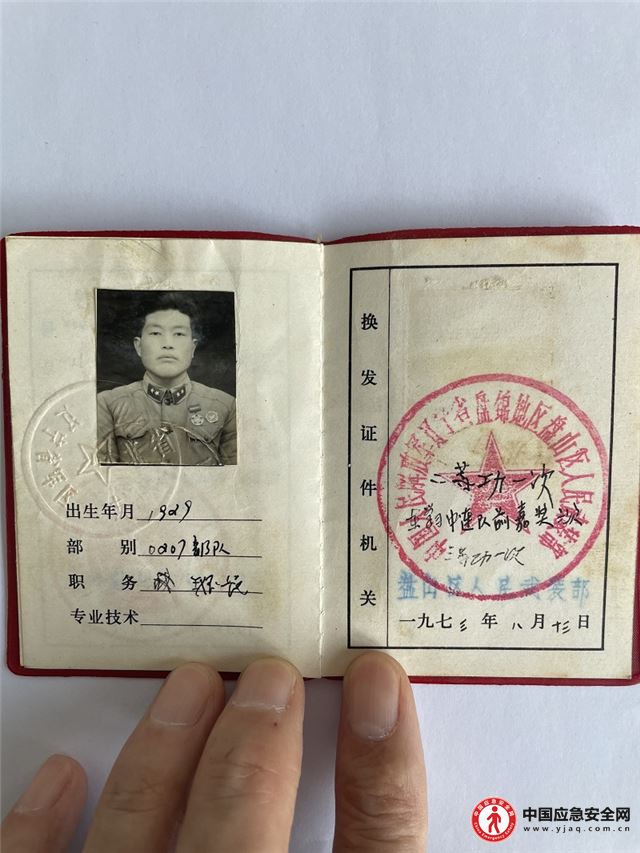 出生年月 1929
部别 0207部队
职务
专业技术
换发证件机关
中国人民解放军辽宁省盘锦地区盘山区人民武装部
二等功一次
三等功一次
盘山区人民武装部
一九七三年八月十三日
中国应急安全网
www.yjaq.com.cn